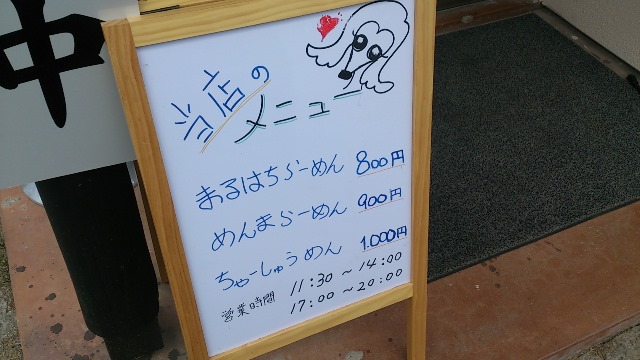 中
当店の
メニュー
まるはちらーめん 800円
めんまらーめん 900円
ちゃーしゅうめん 1.000円
営業時間 11:30 ～ 14:00
17:00 ～ 20:00